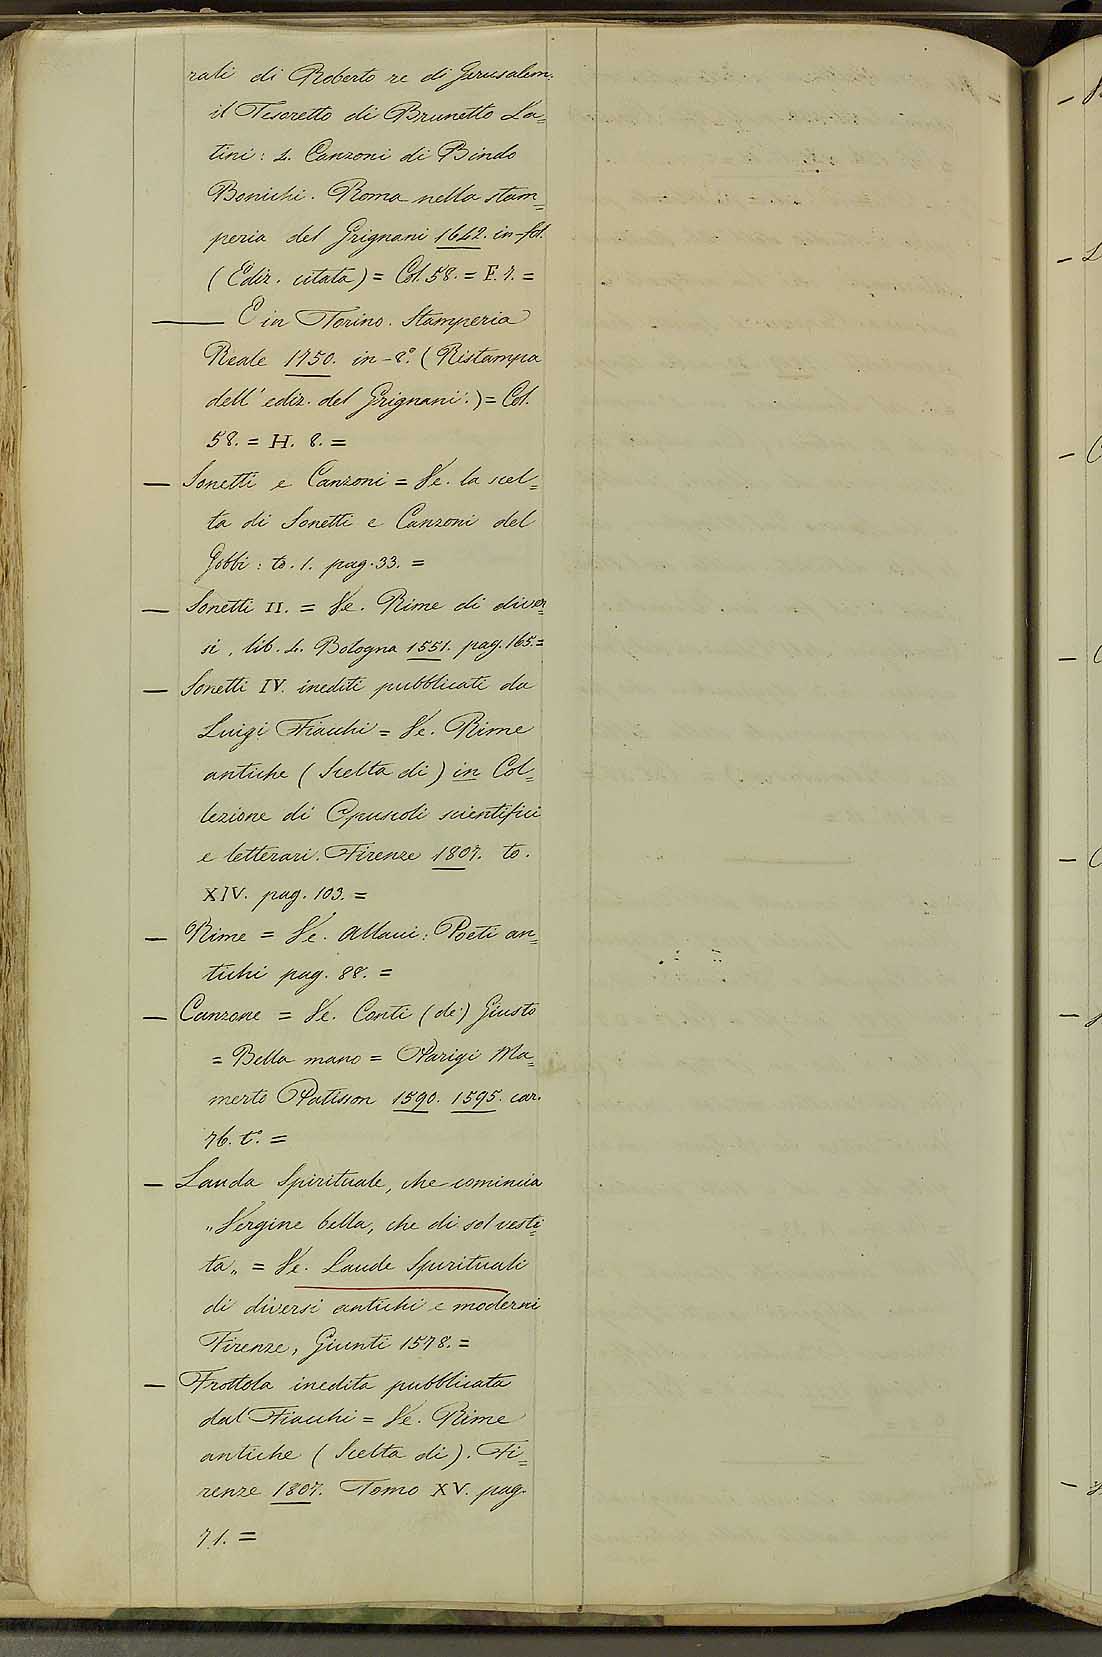 rali di Roberto re di Gerusalem.
il Tesoretto di Brunetto La=
tini: 4. Canzoni di Bindo
Bonichi. Roma nella stam=
peria del Grignani 1642. in-fol.
(Ediz. citata) = Col. 58. = E. 7. =
— E in Torino. Stamperia
Reale 1750. in-8°. (Ristampa
dell' ediz. del Grignani.) = Col.
58. = H. 8. =
— Sonetti e Canzoni = Ve. la scel=
ta di Sonetti e Canzoni del
Gobbi: to. 1. pag. 33. =
— Sonetti II. = Ve. Rime di diver=
si, lib. 4. Bologna 1551. pag. 165. =
— Sonetti IV. inediti pubblicati da
Luigi Fiacchi = Ve. Rime
antiche (Scelta di) in Col=
lezione di Opuscoli scientifici
e letterari. Firenze 1807. to.
XIV. pag. 103. =
— Rime = Ve. Allacci: Poeti an=
tichi pag. 88. =
— Canzone = Ve. Conti (de') Giusto
= Bella mano = Parigi Ma=
merto Patisson 1590. 1595. car.
76. t°. =
— Lauda Spirituale, che comincia
„Vergine bella, che di sol vesti=
ta„ = Ve. Laude Spirituali
di diversi antichi e moderni
Firenze, Giunti 1578. =
— Frottola inedita pubblicata
dal Fiacchi = Ve. Rime
antiche (Scelta di). Fi=
renze 1807. Tomo XV. pag.
71. =